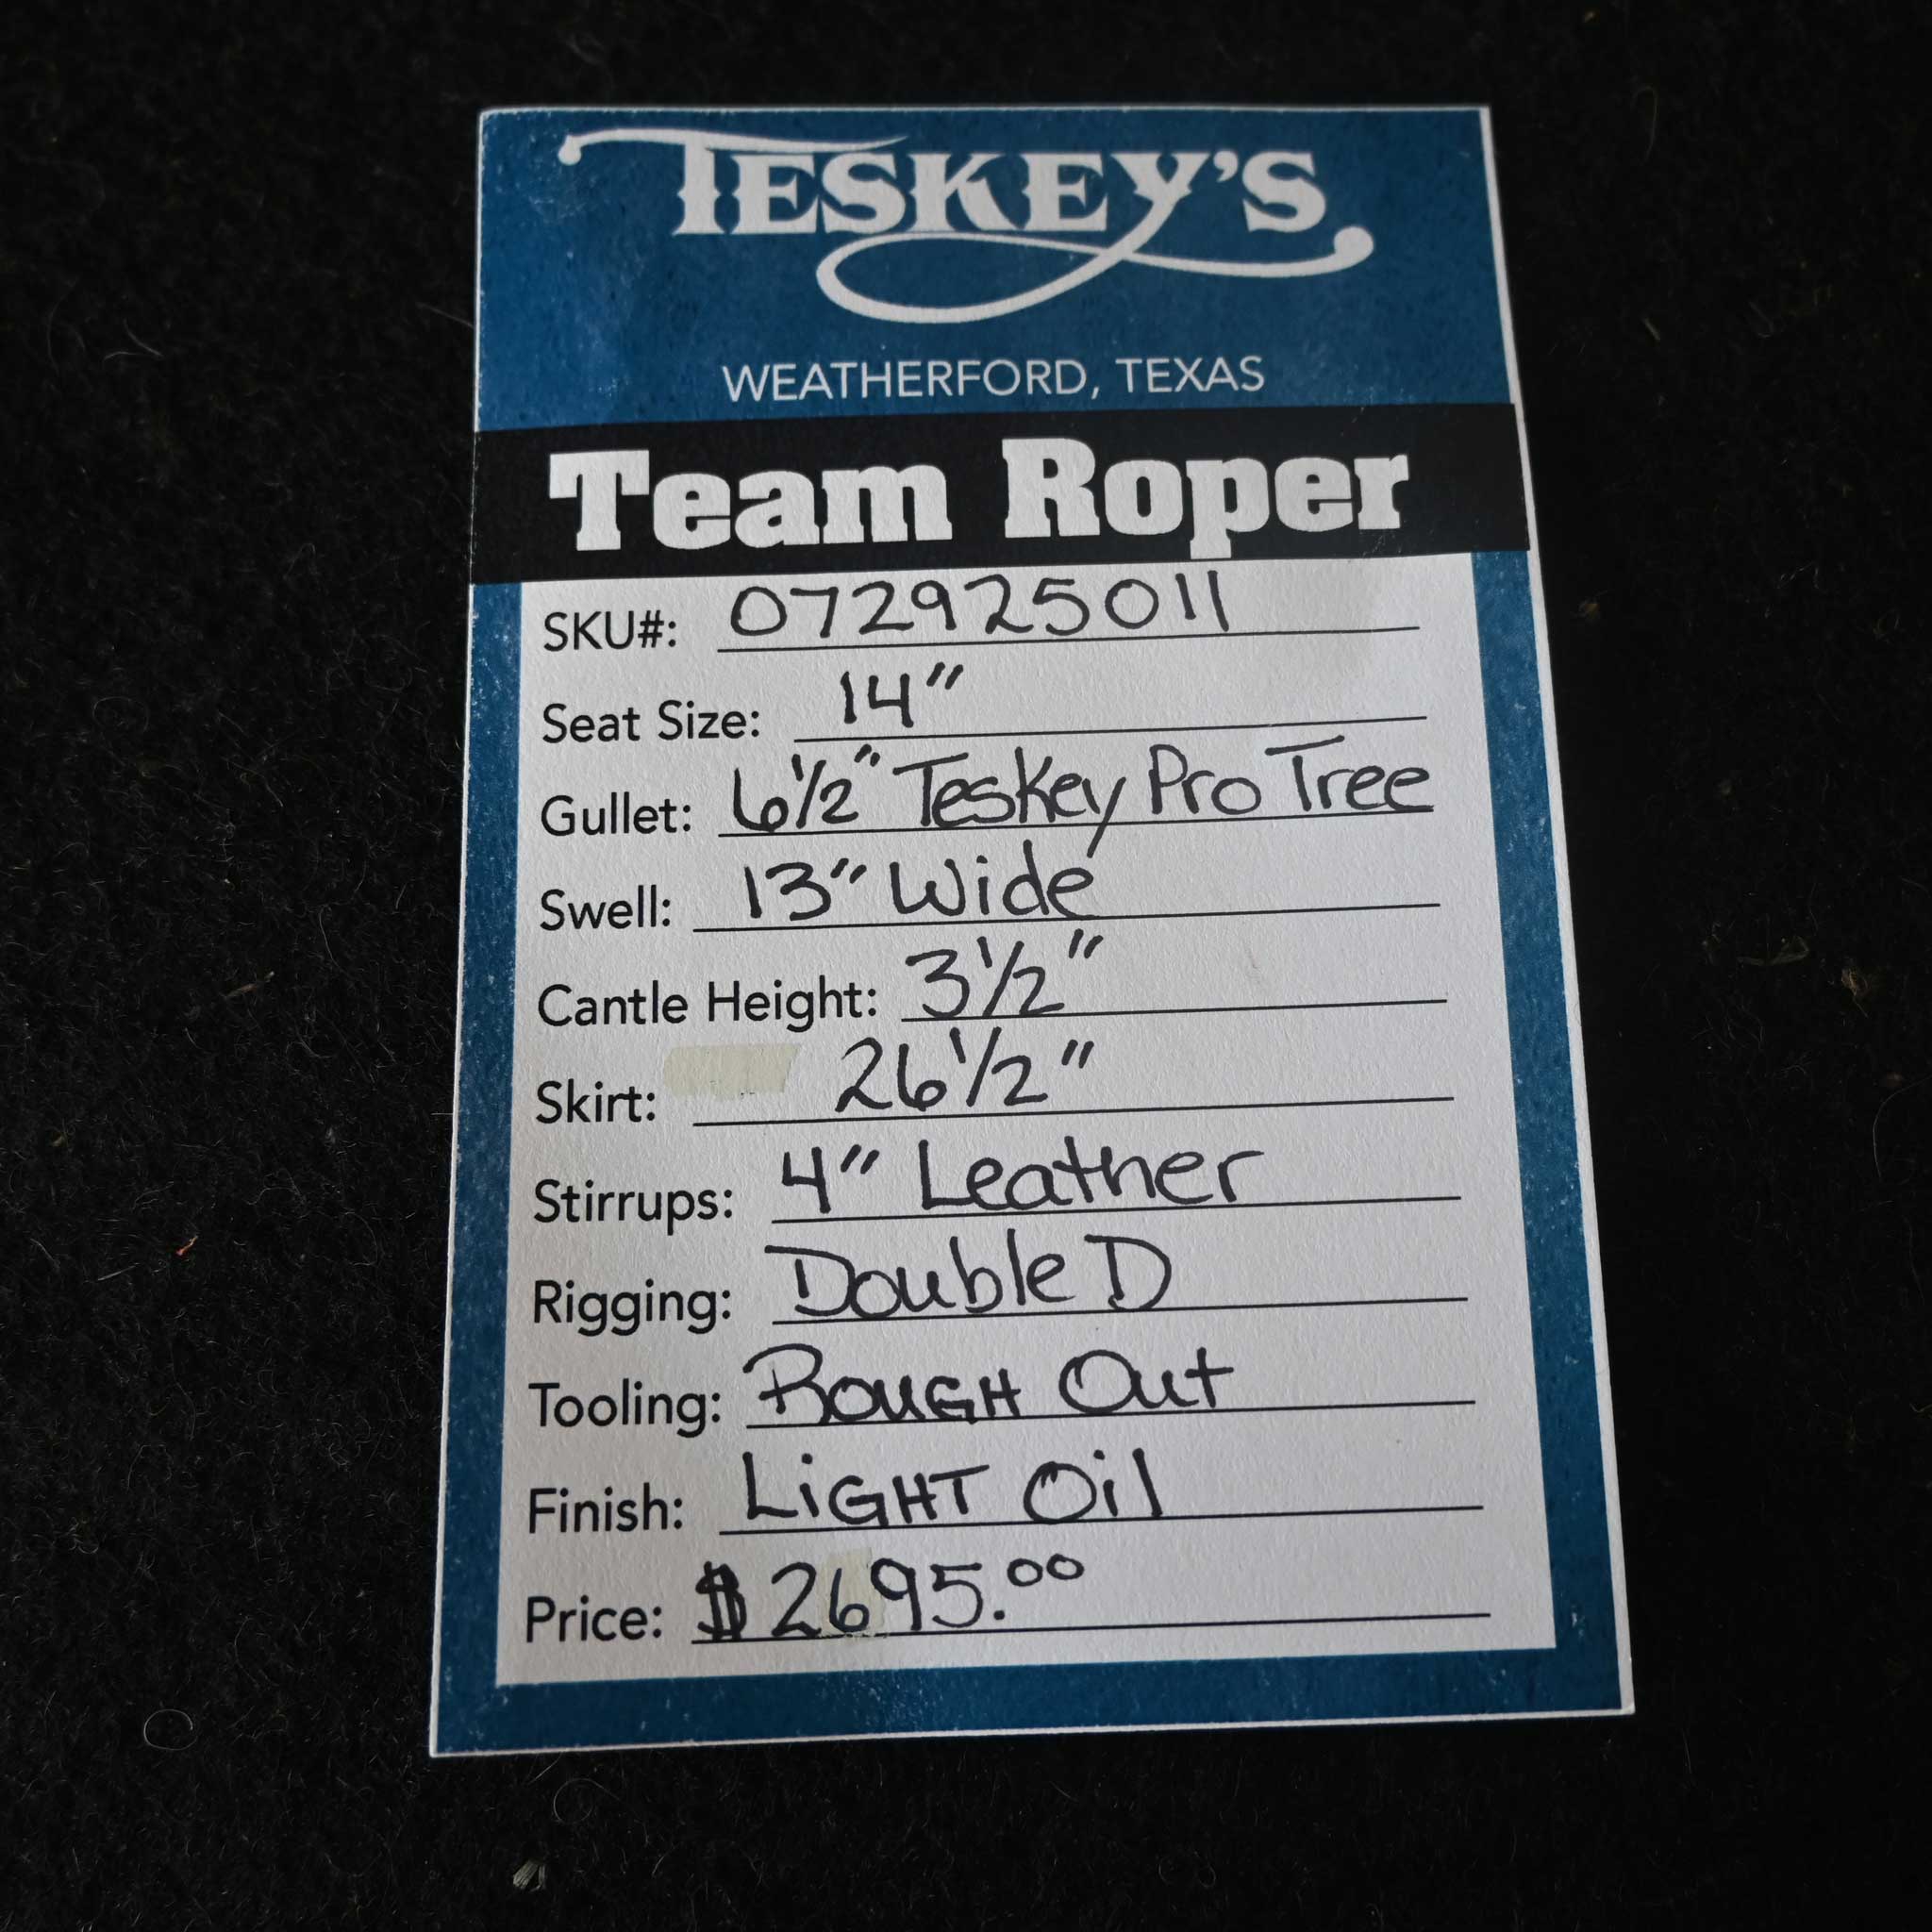 TESKEY'S
WEATHERFORD, TEXAS
Team Roper
SKU#: 072925011
Seat Size: 14"
Gullet: 6 1/2" Teskey Pro Tree
Swell: 13" Wide
Cantle Height: 3 1/2"
Skirt: 26 1/2"
Stirrups: 4" Leather
Rigging: Double D
Tooling: ROUGH Out
Finish: LiGHT Oil
Price: $2695.00